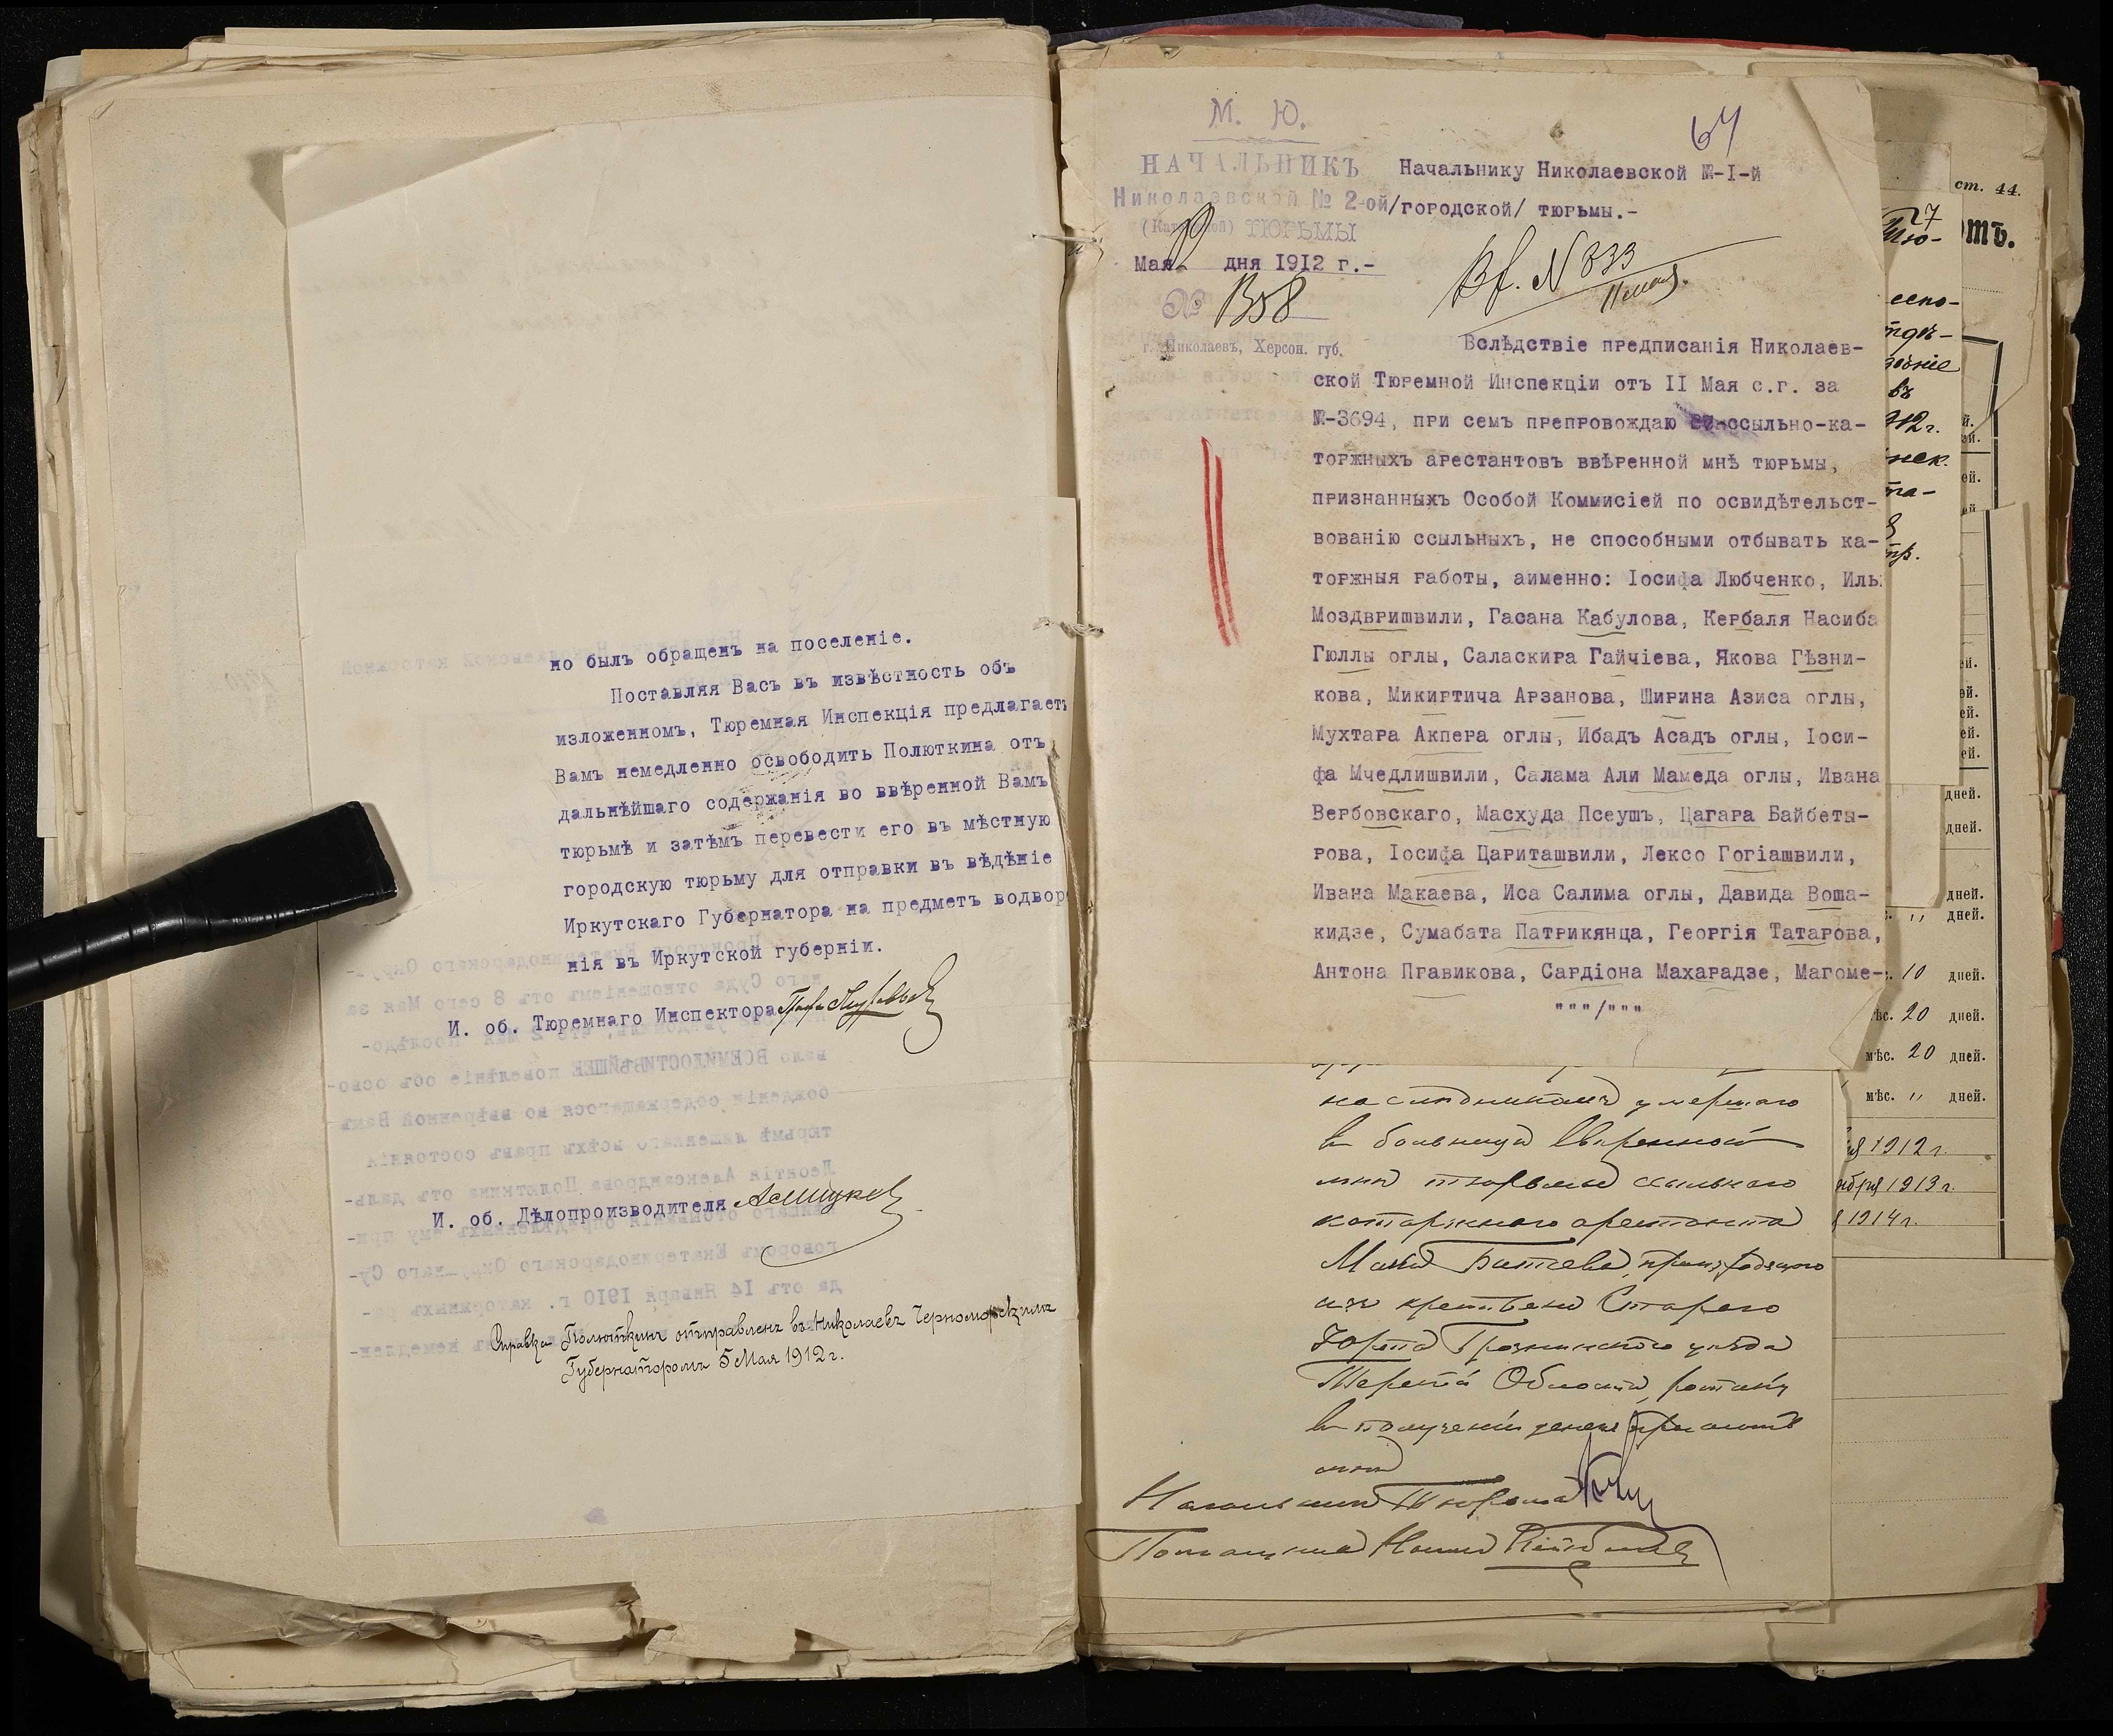 но былъ обращенъ на поселеніе.
Поставляя Васъ въ извѣстность объ
изложенномъ, Тюремная Инспекція предлагаетъ
Вамъ немедленно освободить Полюткина отъ
дальнѣйшаго содержанія во ввѣренной Вамъ
тюрьмѣ и затѣмъ перевести его въ мѣстную
городскую тюрьму для отправки въ вѣдѣніе
Иркутскаго Губернатора на предметъ водвор
нія въ Иркутской губерніи.
И. об. Тюремнаго Инспектора
И. об. Дѣлопроизводителя
Справка Полюткинъ отправленъ въ Николаевъ Черноморскимъ
Губернаторомъ 5 Мая 1912 г.
М. Ю.
64
НАЧАЛЬНИКЪ
Николаевской № 2-ой
(Каторжной) ТЮРЬМЫ
Мая дня 1912 г.-
№ 1358
г. Николаевъ, Херсон. губ.
Начальнику Николаевской №-I-й
/городской/ тюрьмы.-
Вх. N 833
11 мая.
Вслѣдствіе предписанія Николаев-
ской Тюремной Инспекціи отъ II Мая с.г. за
№-3694, при семъ препровождаю ссыльно-ка-
торжныхъ арестантовъ ввѣренной мнѣ тюрьмы,
признанныхъ Особой Коммисіей по освидѣтельст-
вованію ссыльныхъ, не способными отбывать ка-
торжныя работы, аименно: Іосифа Любченко, Иль
Моздвришвили, Гасана Кабулова, Кербаля Насиба
Гюллы оглы, Саласкира Гайчіева, Якова Гѣзни-
кова, Микиртича Арзанова, Ширина Азиса оглы,
Мухтара Акпера оглы, Ибадъ Асадъ оглы, Іоси-
фа Мчедлишвили, Салама Али Мамеда оглы, Ивана
Вербовскаго, Масхуда Псеушъ, Цагара Байбеты-
рова, Іосифа Цариташвили, Лексо Гогіашвили,
Ивана Макаева, Иса Салима оглы, Давида Воша-
кидзе, Сумабата Патрикянца, Георгія Татарова,
Антона Правикова, Сардіона Махарадзе, Магоме-
"""/"""
наслѣдникамъ умершаго
въ больницѣ ввѣренной
мнѣ тюрьмы ссыльнаго
каторжнаго арестанта
Битіева, происходящаго
изъ крестьянъ Стараго
Юрта Грозненскаго уѣзда
Терской Области,
въ полученіи денегъ
мнѣ
Начальникъ Тюрьмы
ст. 44.
27
Тю-
отъ.
въ
912 г.
дней.
дней.
дней.
,, дней.
10 дней.
20 дней.
мѣс. 20 дней.
мѣс. ,, дней.
1912 г.
1913 г.
1914 г.